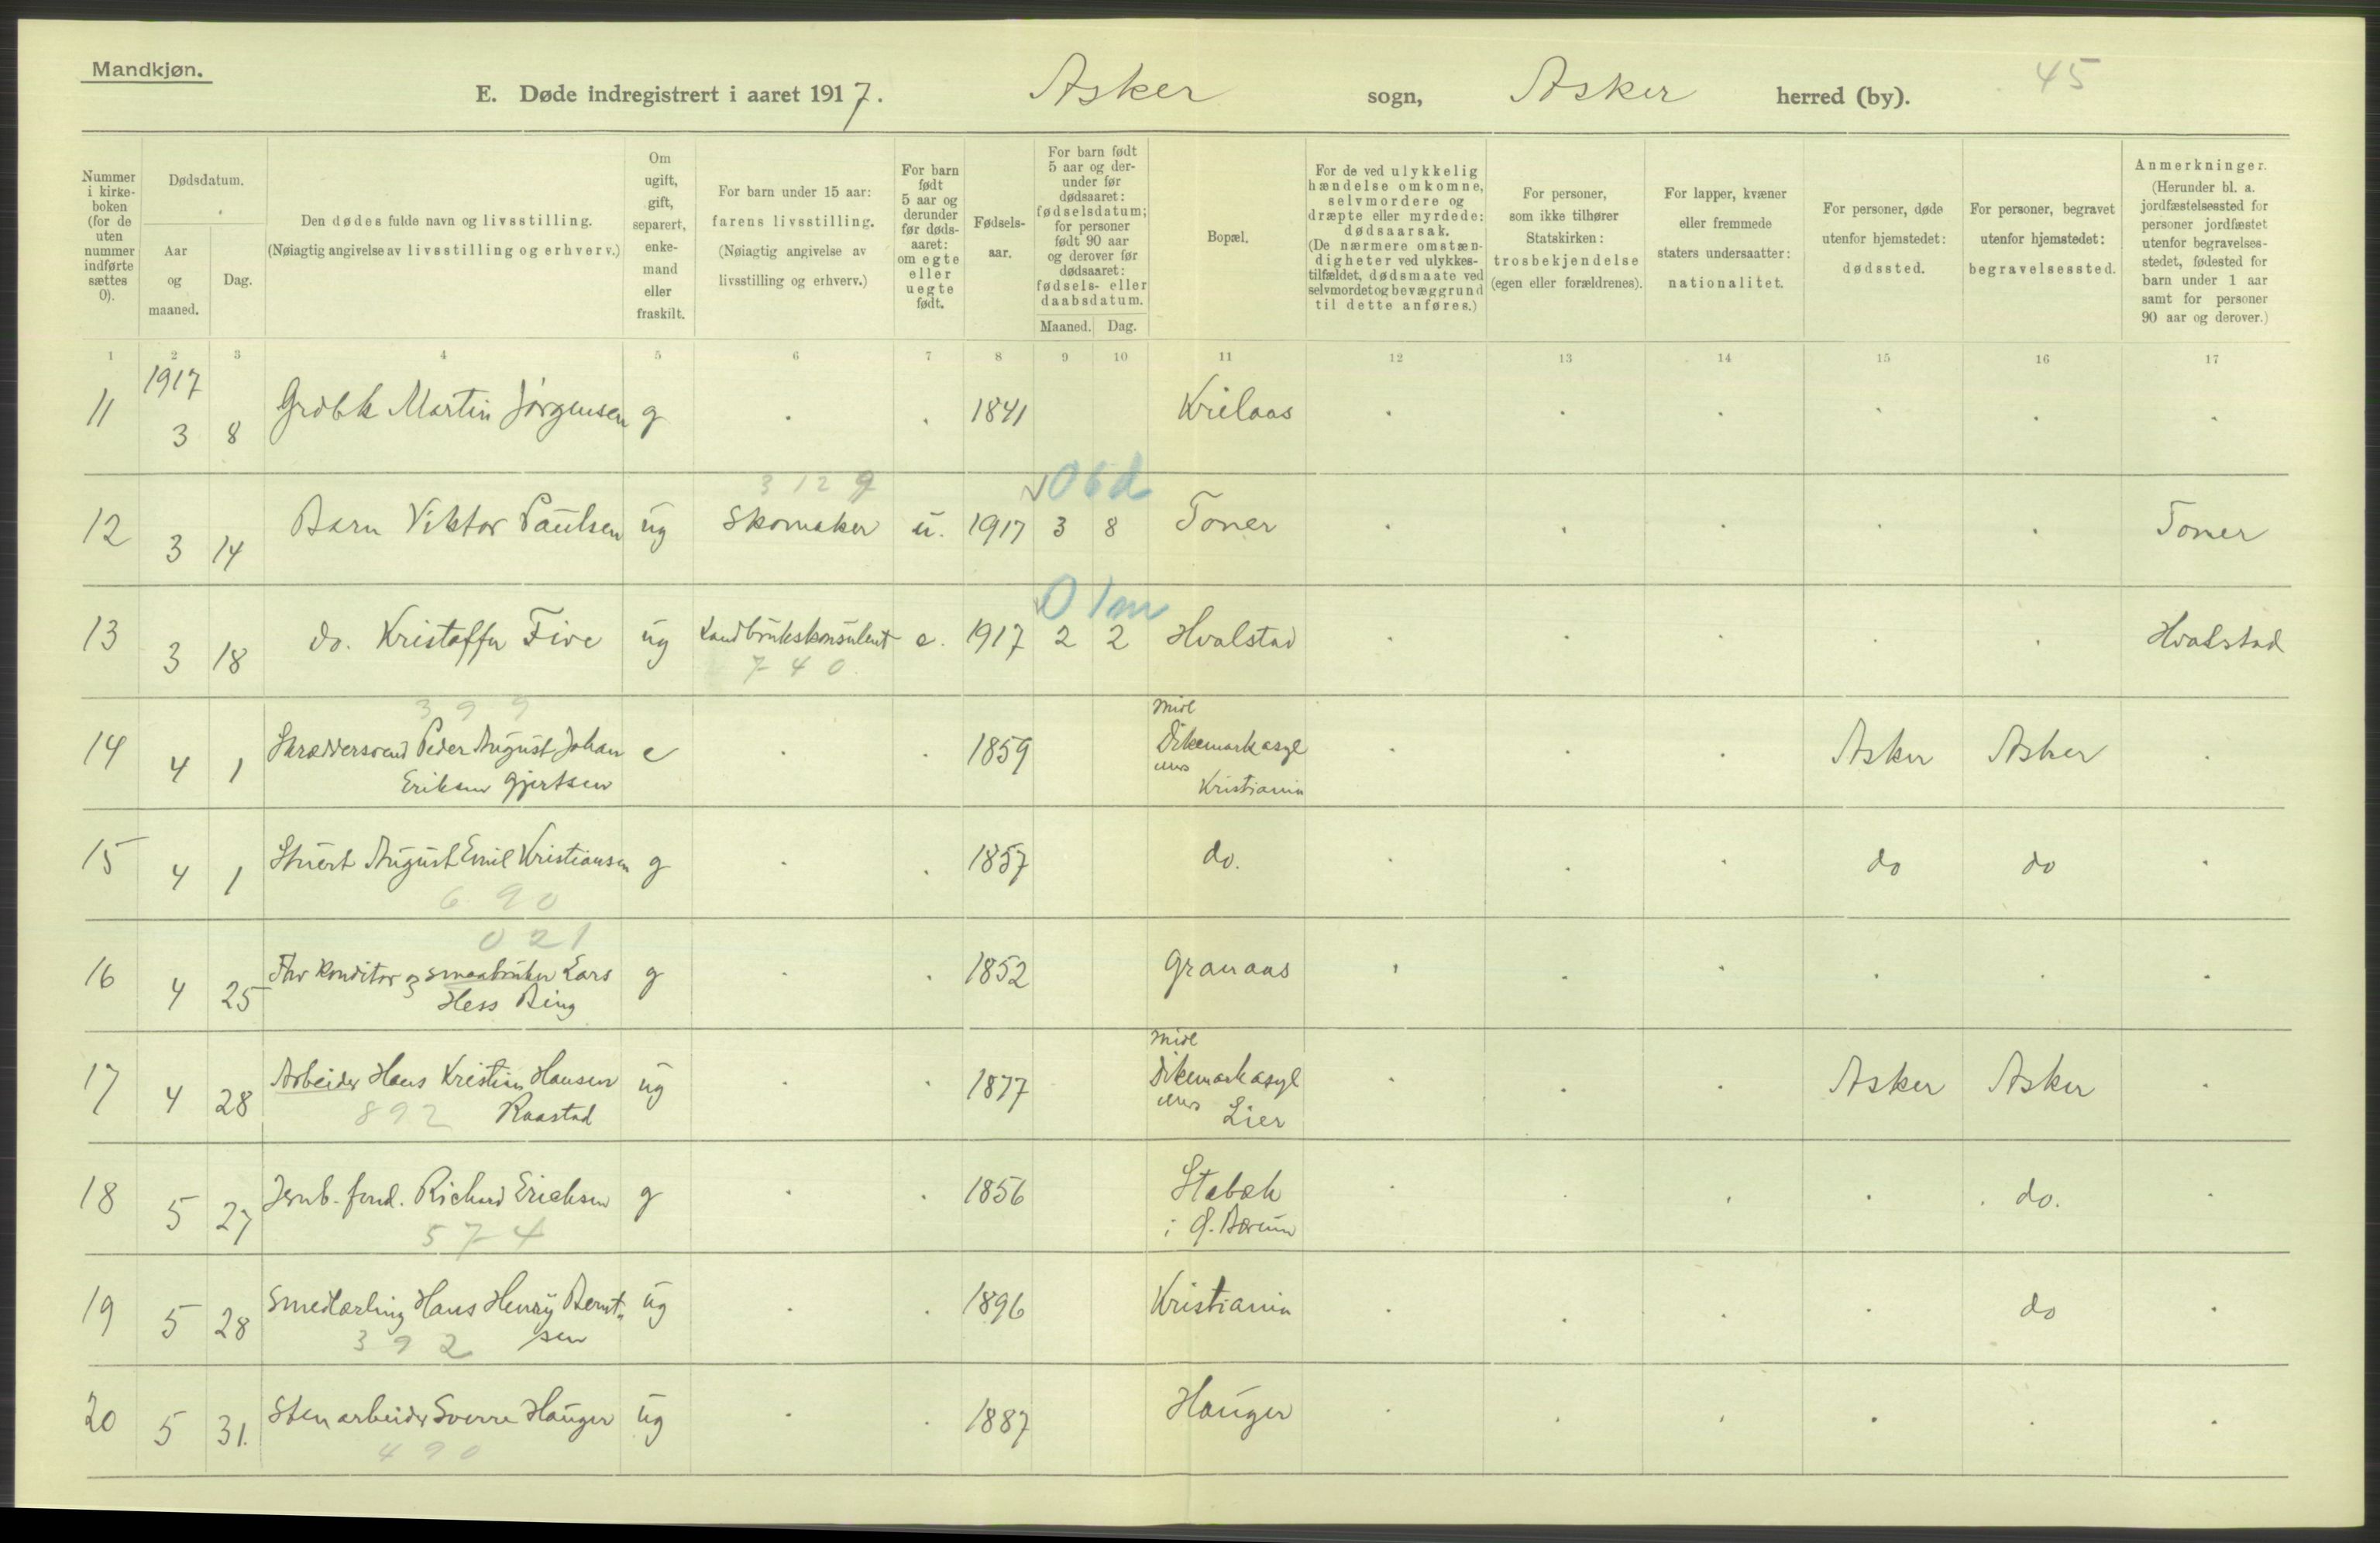 Mandkjøn.
E. Døde indregistrert i aaret 1917. Asker sogn, Asker herred (by). 45
Nummer i kirke-boken (for de uten nummer indførte sættes 0).
Dødsdatum.
Aar og maaned.
Dag.
Den dødes fulde navn og livsstilling.
(Nøiagtig angivelse av livsstilling og erhverv.)
Om ugift, gift, separert, enke-mand eller fraskilt.
For barn under 15 aar:
farens livsstilling.
(Nøiagtig angivelse av livsstilling og erhverv.)
For barn født 5 aar og derunder før døds-aaret: om egte eller uegte født.
Fødsels-aar.
For barn født 5 aar og der-under før dødsaaret: fødselsdatum; for personer født 90 aar og derover før dødsaaret: fødsels- eller daabsdatum.
Maaned. Dag.
Bopæl.
For de ved ulykkelig hændelse omkomne, selvmordere og dræpte eller myrdede: dødsaarsak. (De nærmere omstæn-digheter ved ulykkes-tilfældet, dødsmaate ved selvmordet og bevæggrund til dette anføres.)
For personer, som ikke tilhører Statskirken: trosbekjendelse (egen eller forældrenes).
For lapper, kvæner eller fremmede staters undersaatter: nationalitet.
For personer, døde utenfor hjemstedet: dødssted.
For personer, begravet utenfor hjemstedet: begravelsessted.
Anmerkninger.
(Herunder bl. a. jordfæstelsessted for personer jordfæstet utenfor begravelses-stedet, fødested for barn under 1 aar samt for personer 90 aar og derover.)
1 2 3 4 5 6 7 8 9 10 11 12 13 14 15 16 17
1917
11 3 8 Martin Jørgensen g . . 1841 . . . . . .
3 12 9 06d
12 3 14 Barn Viktor Paulsen ug Skomaker u. 1917 3 8 Toner . . . . . Toner
01m
13 3 18 do. Kristoffer Five ug Landbrukskonsulent e. 1917 2 2 Hvalstad . . . . . Hvalstad
7 4 0
3 9 9
14 4 1 Skræddersvend Peder August Johan Eriksen Gjertsen e . . 1859 Midl Dikemark asyl ellers Kristiania . . . Asker Asker .
15 4 1 August Emil Kristiansen g . . 1857 do. . . . do do .
6 9 0
0 21
16 4 25 Fhv Konditor og smaabruker Lars Hess Bing g . . 1852 Granaas . . . . . .
17 4 28 Arbeider Hans Kristian Hansen Raastad ug . . 1877 Midl Dikemark asyl ellers Lier . . . Asker Asker .
892
18 5 27 Jernb. fend. Richard Ericksen g . . 1856 Stabæk i Ø. Bærum . . . . do. .
5 7 4
19 5 28 Smedlærling Hans Henry Berntsen ug . . 1896 Kristiania . . . . do .
3 9 2
20 5 31. Stenarbeider Sverre Hauger ug . . 1887 Hauger . . . . . .
4 9 0